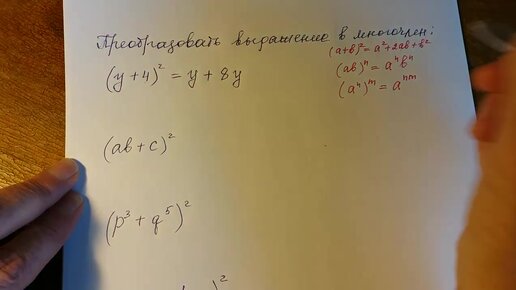 Преобразовать выражение в многочлен:
(a+b)² = a² + 2ab + b²
(y+4)² = y + 8y
(ab)ⁿ = aⁿbⁿ
(aⁿ)ᵐ = aⁿᵐ
(ab+c)²
(p³ + q⁵)²
)²